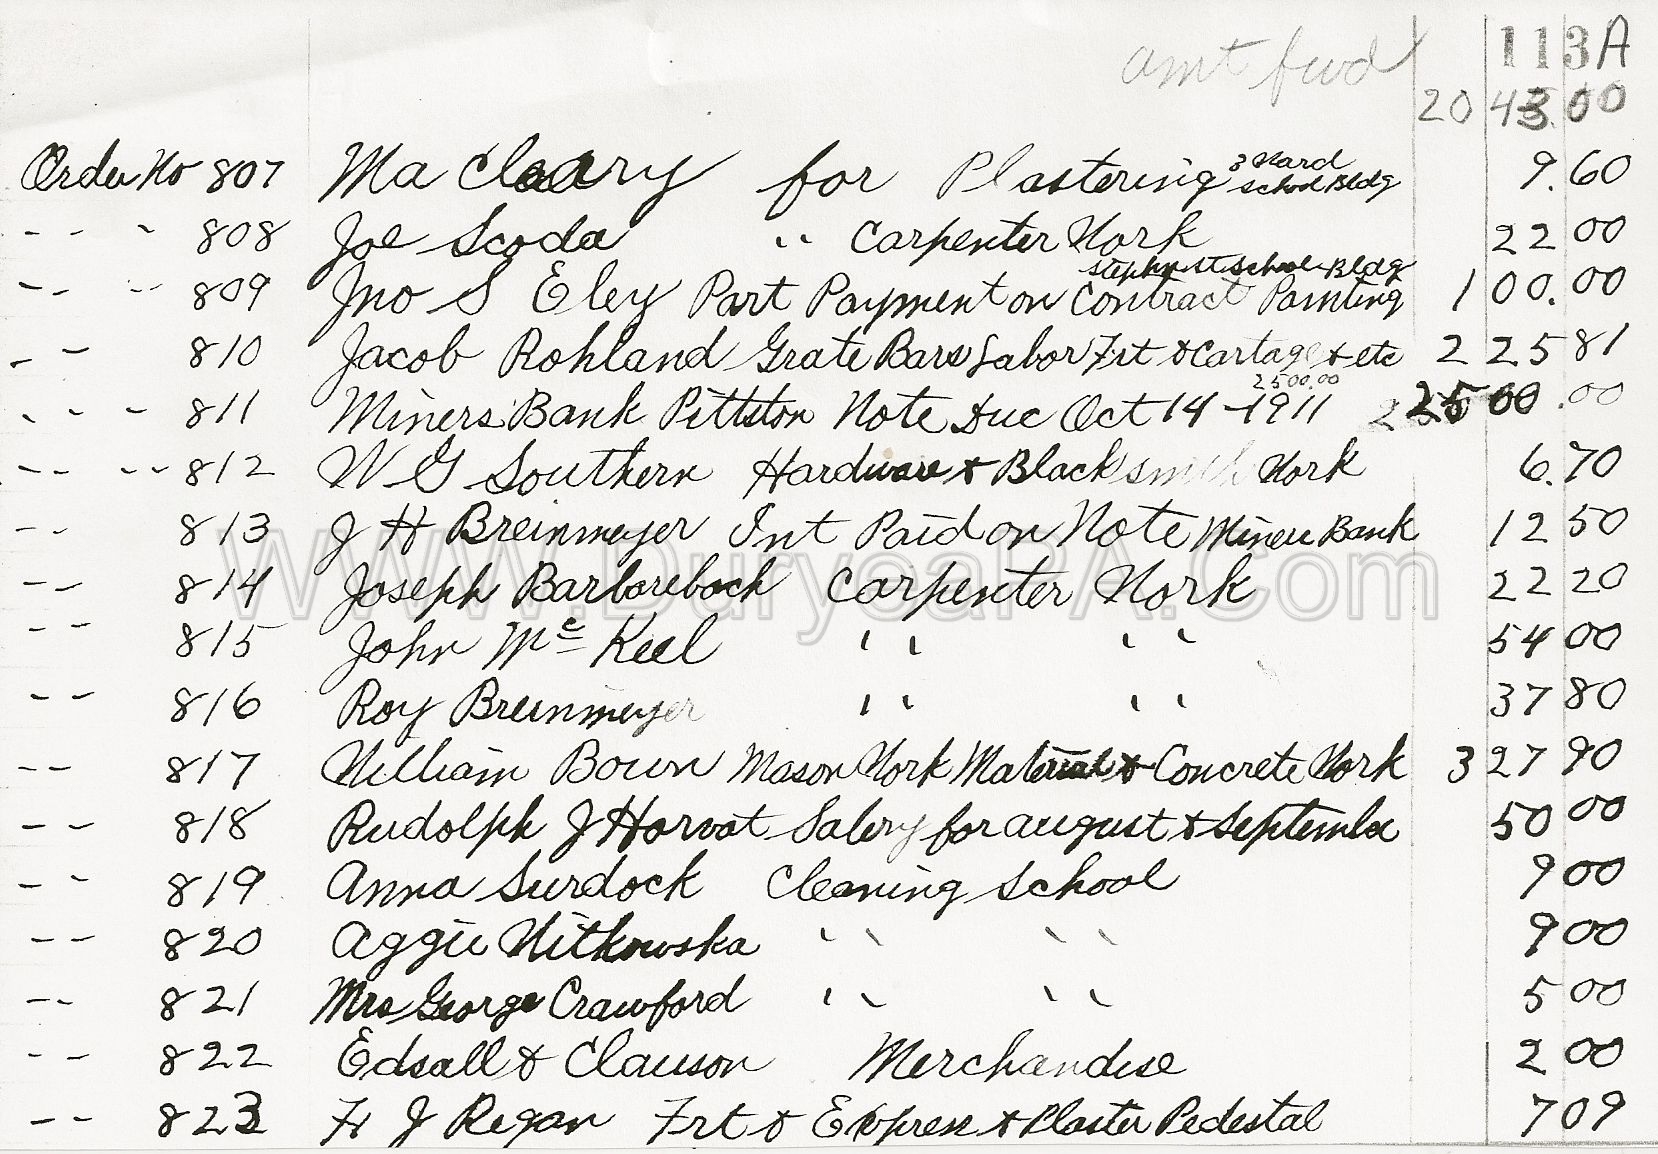 113A
amt fwd
20 43.00
Order No 807 Ma Cleary for Plastering 3 Ward School Bldg 9.60
-- - 808 Joe Scoda " Carpenter Work 22 00
-- -- 809 Jno S Eley Part Payment on Contract Painting Stephn St School Bldg 100.00
- - 810 Jacob Rohland Grate Bars Labor Frt & Cartage & etc 225 81
- - - 811 Miners Bank Pittston Note Due Oct 14 - 1911 2500.00 2500.00
-- -- 812 W G Southern Hardware & Blacksmith Work 6.70
-- 813 J H Breinmeyer Int Paid on Note Miners Bank 12 50
-- 814 Joseph Barlorebach Carpenter Work 22 20
-- 815 John Mc Keel " " 54 00
-- 816 Roy Breinmeyer " " 37 80
-- 817 William Bown Mason Work Material & Concrete Work 327 90
-- 818 Rudolph J Horvat Salery for august & September 50 00
-- 819 Anna Surdock Cleaning School 9 00
-- 820 Aggie Witkowska " " 9 00
-- 821 Mrs George Crawford " " 5 00
-- 822 Edsall & Clauson Merchandise 2 00
-- 823 J Regan Frt & Express & Plaster Pedestal 7 09
WWW.DuryeaPA.Com